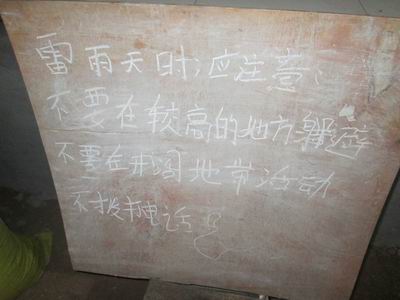 雷雨天时应注意:
不要在较高的地方躲避
不要在开阔地带活动
不拨打电话